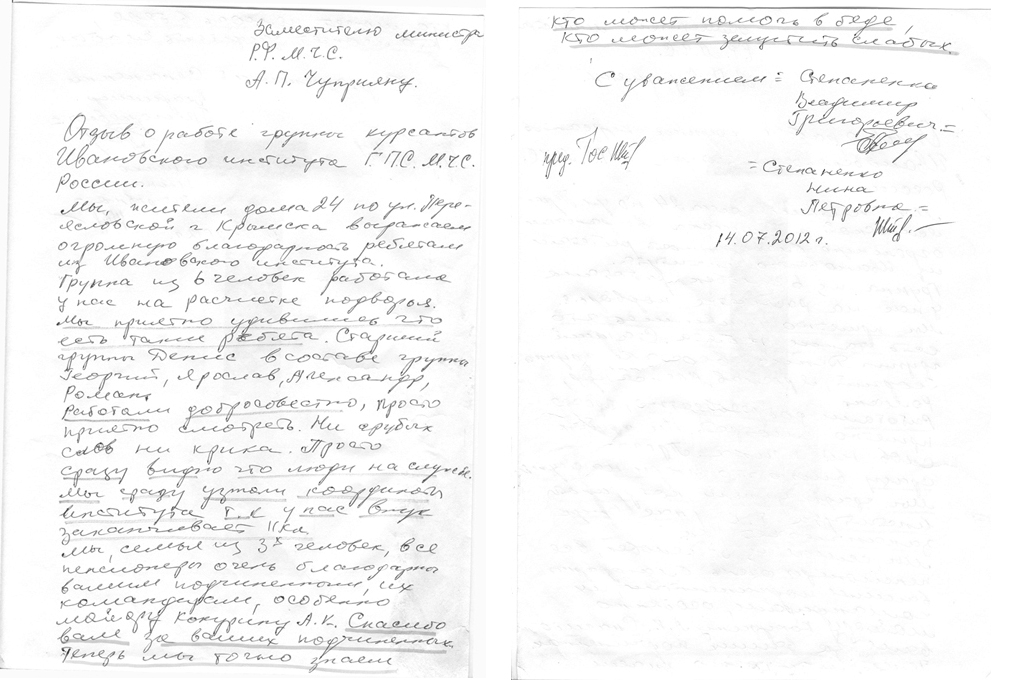 Заместителю министра
Р.Ф. М.Ч.С.
А.П. Чуприяну.
Отзыв о работе группы курсантов
Ивановского института Г.П.С. М.Ч.С.
России.
Мы, жители дома 24 по ул. Пере-
ясловской г Крымска выражаем
огромную благодарность ребятам
из Ивановского института.
Группа из 6 человек работала
у нас на расчистке подворья.
Мы приятно удивились что
есть такие ребята. Старший
группы Денис в составе группы
Георгий, Ярослав, Александр,
Роман,
Работали добросовестно, просто
приятно смотреть. Ни грубых
слов ни крика. Просто
сразу видно что люди на службе.
Мы сразу узнали координаты
Института т.к у нас внук
заканчивает 11 кл.
Мы, семья из 3х человек, все
пенсионеры очень благодарны
вашим подчиненным, их
командирам, особенно
майору Кокурину А.К. Спасибо
вам за ваших подчиненных.
Теперь мы точно знаем
кто может помочь в беде,
кто может защитить слабых.
С уважением = Степаненко
Владимир
Григорьевич =
= Степаненко
Нина
Петровна =
14.07.2012 г.